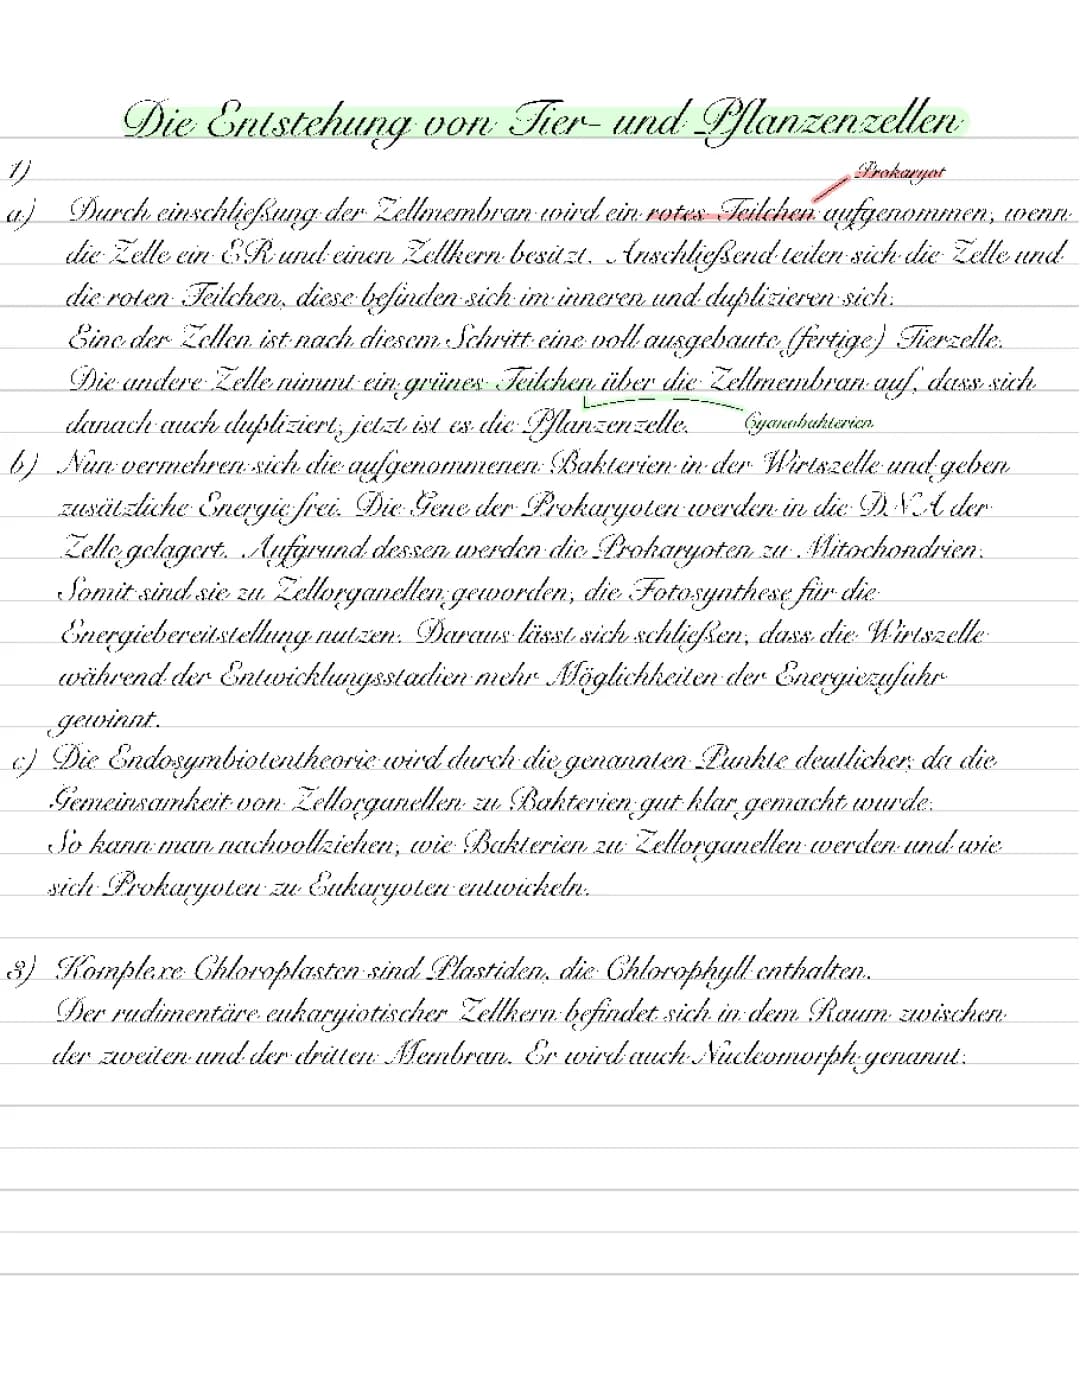 Die Entstehung von Tier- und Pflanzenzellen
1)
Prokaryot
a) Durch einschließung der Zellmembran wird ein rotes Teilchen aufgenommen, wenn
die Zelle ein ER und einen Zellkern besitzt. Anschließend teilen sich die Zelle und
die roten Teilchen, diese befinden sich im inneren und duplizieren sich.
Eine der Zellen ist nach diesem Schritt eine voll ausgebaute (fertige) Tierzelle.
Die andere Zelle nimmt ein grünes Teilchen über die Zellmembran auf, dass sich
danach auch dupliziert, jetzt ist es die Pflanzenzelle.
Cyanobakterien
b) Nun vermehren sich die aufgenommenen Bakterien in der Wirtszelle und geben
zusätzliche Energie frei. Die Gene der Prokaryoten werden in die DNA der
Zelle gelagert. Aufgrund dessen werden die Prokaryoten zu Mitochondrien.
Somit sind sie zu Zellorganellen geworden, die Fotosynthese für die
Energiebereitstellung nutzen. Daraus lässt sich schließen, dass die Wirtszelle
während der Entwicklungsstadien mehr Möglichkeiten der Energiezufuhr
gewinnt.
c) Die Endosymbiotentheorie wird durch die genannten Punkte deutlicher, da die
Gemeinsamkeit von Zellorganellen zu Bakterien gut klar gemacht wurde.
So kann man nachvollziehen, wie Bakterien zu Zellorganellen werden und wie
sich Prokaryoten zu Eukaryoten entwickeln.
3) Komplexe Chloroplasten sind Plastiden, die Chlorophyll enthalten.
Der rudimentäre eukaryiotischer Zellkern befindet sich in dem Raum zwischen
der zweiten und der dritten Membran. Er wird auch Nucleomorph genannt.